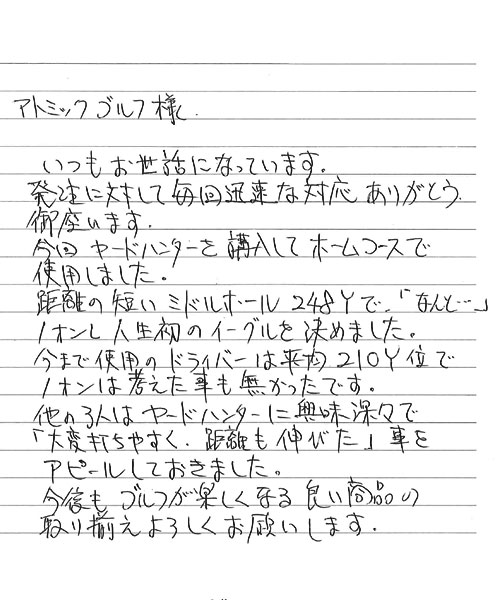 アトミックゴルフ様
いつもお世話になっています.
発注に対して毎回迅速な対応 ありがとう
御座います.
今回 ヤードハンターを 購入して ホームコースで
使用しました。
距離の短い ミドルホール 248Yで、「なんと…」
1オンし 人生初のイーグルを 決めました。
今まで使用の ドライバーは平均 210Y位で
1オンは考えた事も無かったです.
他の3人は ヤードハンターに 興味深々で
「大変打ちやすく. 距離も伸びた」事を
アピールしておきました。
今後も ゴルフが楽しくなる 良い商品の
取り揃えよろしくお願いします.